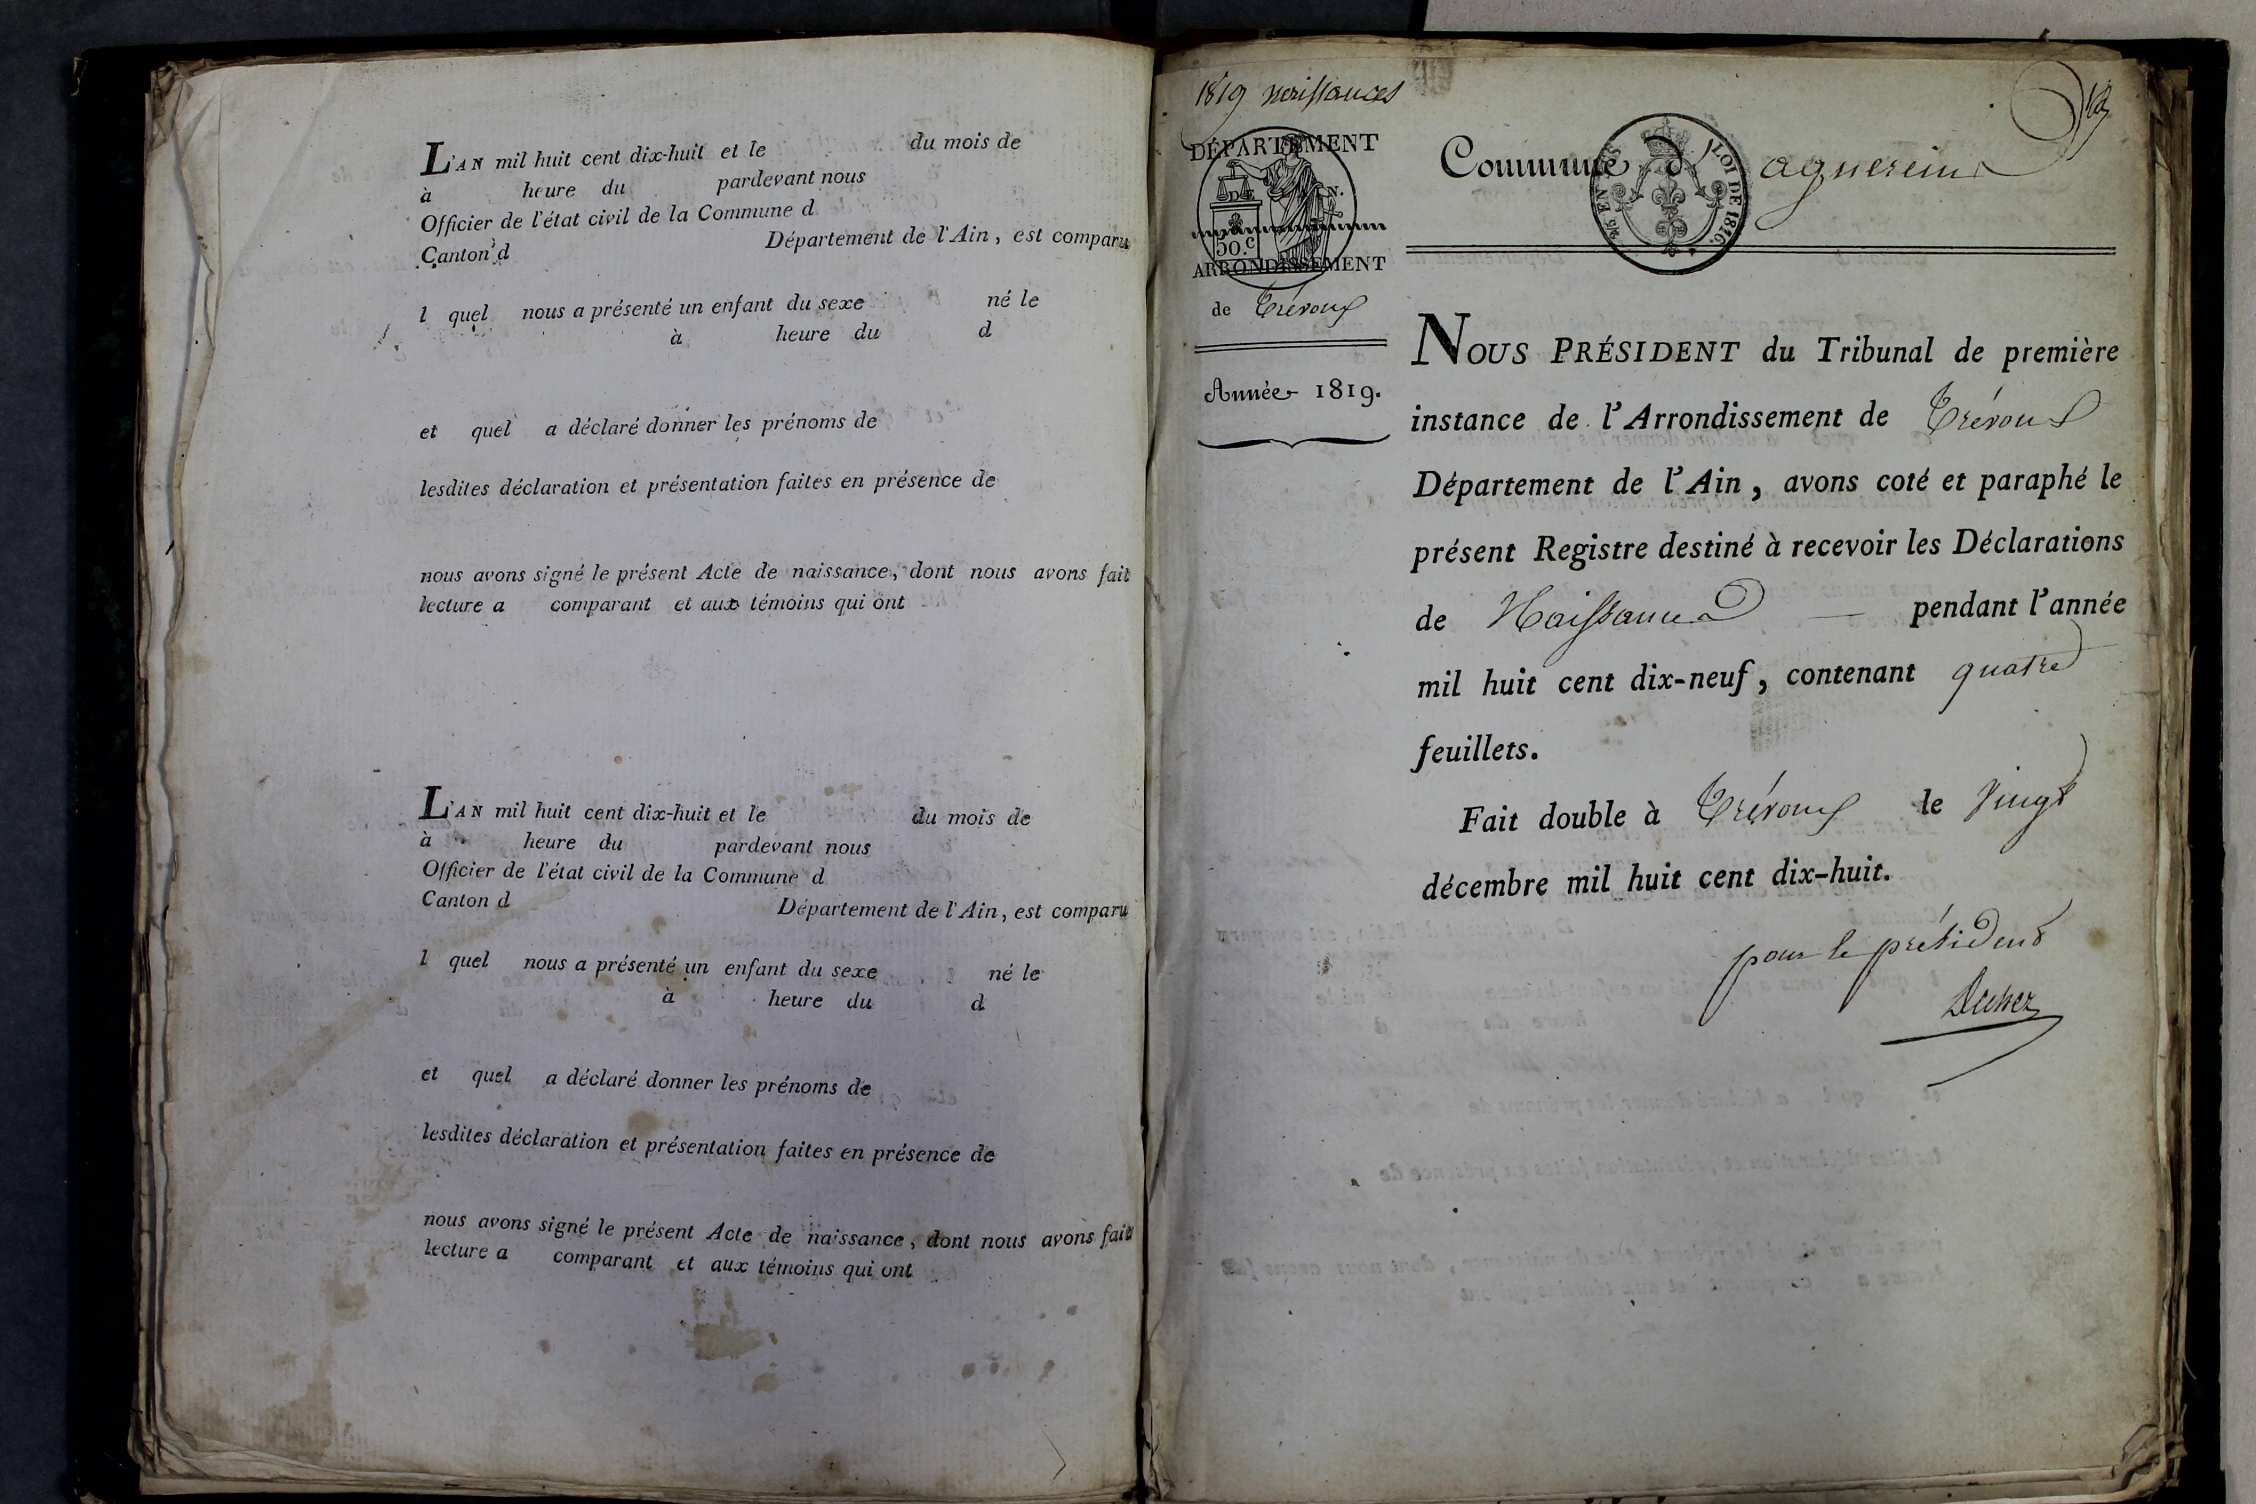 L'AN mil huit cent dix-huit et le du mois de
à heure du pardevant nous
Officier de l'état civil de la Commune d
Canton d Département de l'Ain, est comparu
l quel nous a présenté un enfant du sexe né le
à heure du d
et quel a déclaré donner les prénoms de
lesdites déclaration et présentation faites en présence de
nous avons signé le présent Acte de naissance, dont nous avons fait
lecture a comparant et aux témoins qui ont
L'AN mil huit cent dix-huit et le du mois de
à heure du pardevant nous
Officier de l'état civil de la Commune d
Canton d Département de l'Ain, est comparu
l quel nous a présenté un enfant du sexe né le
à heure du d
et quel a déclaré donner les prénoms de
lesdites déclaration et présentation faites en présence de
nous avons signé le présent Acte de naissance, dont nous avons fait
lecture a comparant et aux témoins qui ont
1819 naissances
DÉPARTEMENT
DE L'AIN.
50.c
ARRONDISSEMENT
de Trévoux
Année 1819.
Commune d'aguereins
EN SUS
LOI DE 1816.
NOUS PRÉSIDENT du Tribunal de première
instance de l'Arrondissement de Trévoux
Département de l'Ain, avons coté et paraphé le
présent Registre destiné à recevoir les Déclarations
de Naissance — pendant l'année
mil huit cent dix-neuf, contenant quatre
feuillets.
Fait double à Trévoux le vingt
décembre mil huit cent dix-huit.
pour le président